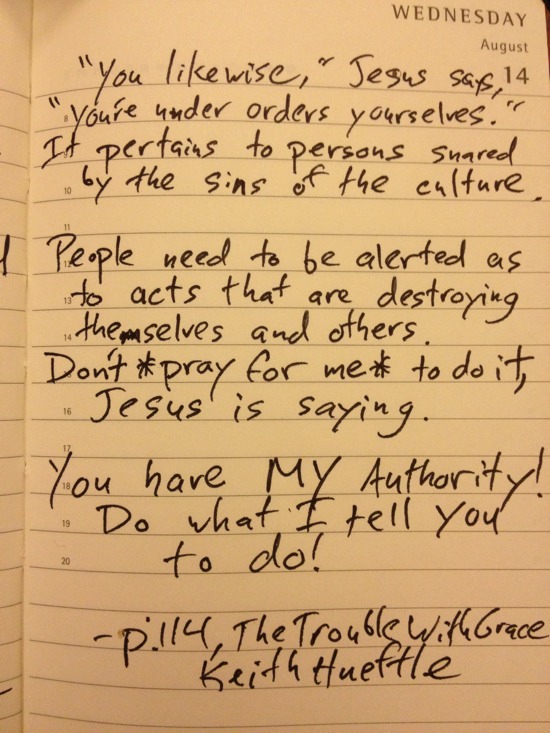 WEDNESDAY
August
14
"You likewise," Jesus says,
"you're under orders yourselves."
It pertains to persons snared
by the sins of the culture.
People need to be alerted as
to acts that are destroying
themselves and others.
Don't *pray for me* to do it,
Jesus is saying.
You have MY Authority!
Do what I tell you
to do!
-p.114, The Trouble With Grace
Keith Hueftle
8
9
10
11
12
13
14
16
17
18
19
20